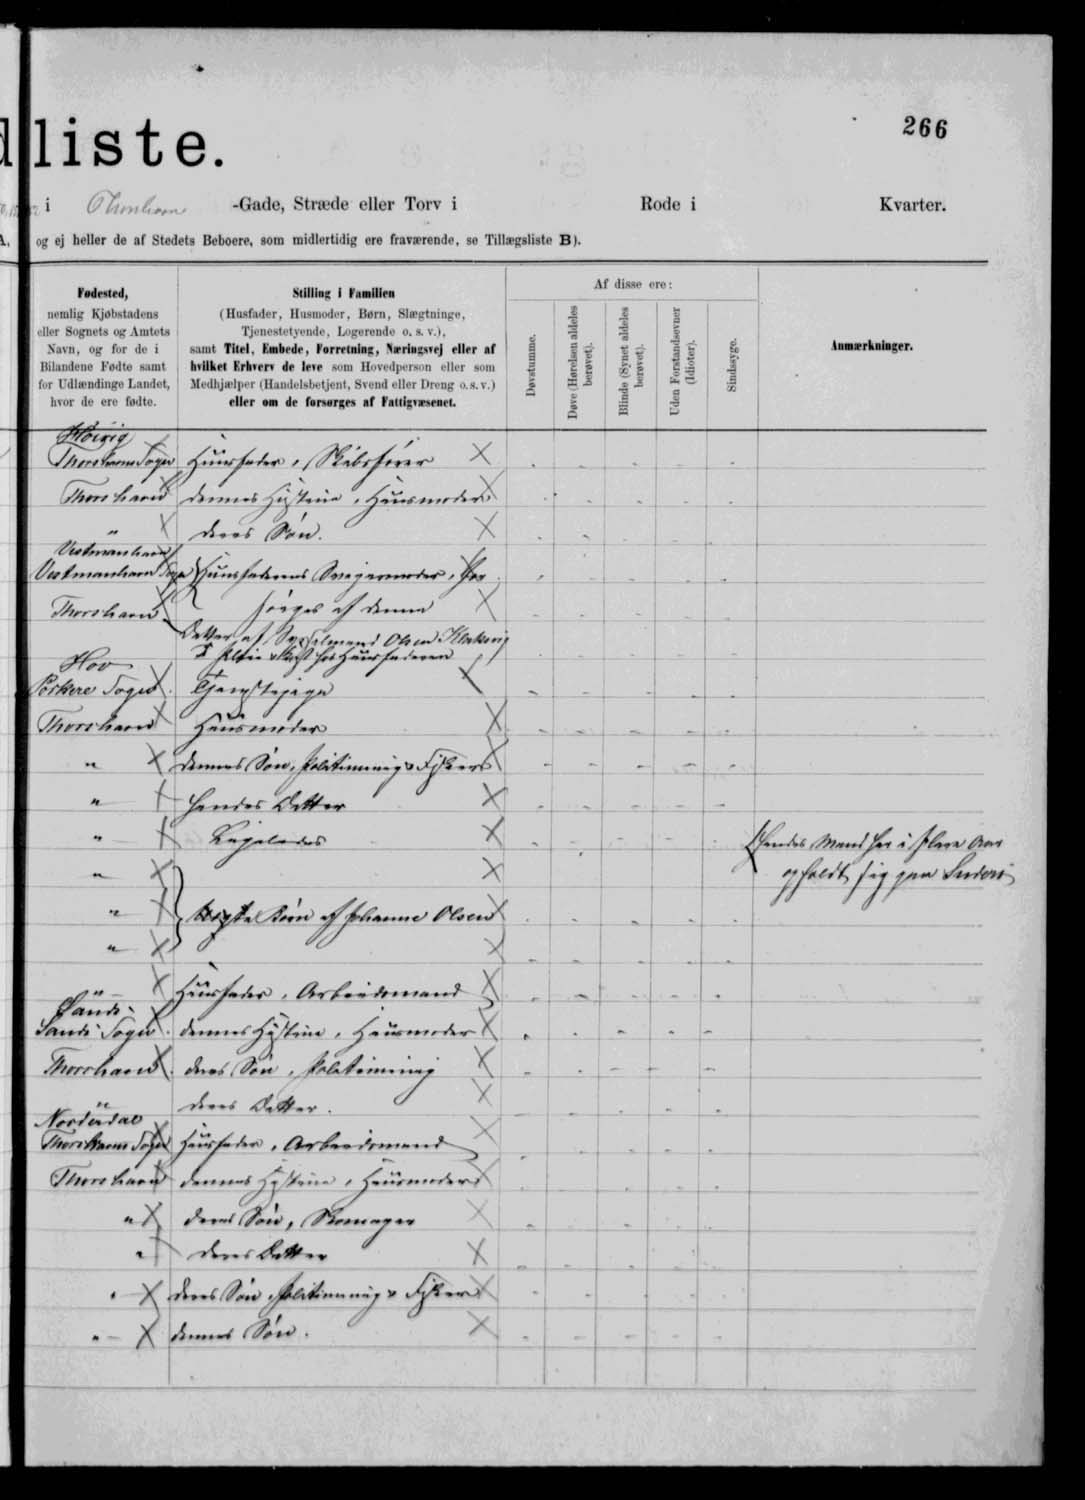 liste.
266
i Thorshavn -Gade, Stræde eller Torv i Rode i Kvarter.
og ej heller de af Stedets Beboere, som midlertidig ere fraværende, se Tillægsliste B).
Fødested,
nemlig Kjøbstadens
eller Sognets og Amtets
Navn, og for de i
Bilandene Fødte samt
for Udlændinge Landet,
hvor de ere fødte.
Stilling i Familien
(Husfader, Husmoder, Børn, Slægtninge,
Tjenestetyende, Logerende o. s. v.),
samt Titel, Embede, Forretning, Næringsvej eller af
hvilket Erhverv de leve som Hovedperson eller som
Medhjælper (Handelsbetjent, Svend eller Dreng o. s. v.)
eller om de forsørges af Fattigvæsenet.
Af disse ere:
Døvstumme.
Døve (Hørelsen aldeles
berøvet).
Blinde (Synet aldeles
berøvet).
Uden Forstandsevner
(Idioter).
Sindssyge.
Anmærkninger.
Hoivig
Thorshavns Sogn Huusfader, Skibsfører
Thorshavn dennes Hustrue, Huusmoder
" deres Søn.
Vestmanhavn
Vestmanhavn Sogn Huusfaderens Svigermoder, for
sørges af denne
Thorshavn Datter af Sysselmand Olsen Klaksvig
I Pleie & Kost hos Huusfaderen
Hov
Porkere Sogn Tjenestepige
Thorshavn Huusmoder
" dennes Søn, Fisker
" hendes Datter
" Ligeledes
hendes Mand har i flere Aar
opholdt sig paa Suderø
"
" Børn af Johanne Olsen
"
" Huusfader, Arbeidsmand
Sands
Sands Sogn dennes Hustrue, Huusmoder
Thorshavn deres Søn,
" deres Datter.
Norderdal
Thorshavns Sogn Huusfader, Arbeidsmand
Thorshavn dennes Hustrue, Huusmoder
" deres Søn, Skomager
" deres Datter
" deres Søn, Fisker
" dennes Søn.